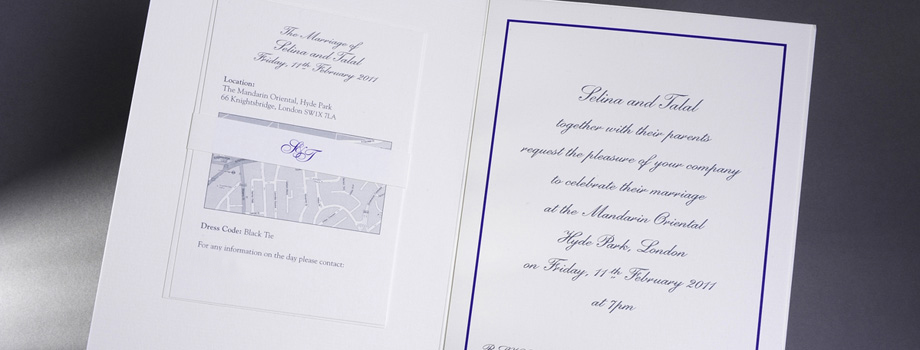 The Marriage of
Selina and Talal
Friday, 11th February 2011
Location:
The Mandarin Oriental, Hyde Park
66 Knightsbridge, London SW1X 7LA
S&T
Dress Code: Black Tie
For any information on the day please contact:
Selina and Talal
together with their parents
request the pleasure of your company
to celebrate their marriage
at the Mandarin Oriental
Hyde Park, London
on Friday, 11th February 2011
at 7pm